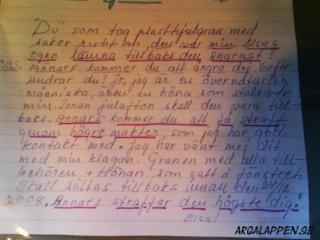 "Du som tog plasthjulgran med
saker runt om, den var min Elsas
egen. Lämna tillbaks den snarast!
OBS. Annars kommer du att ångra dig. Varför
undrar du? Jo, jag är en övernaturlig
människa, även en höna som stals var
min. Innan julafton skall den vara till-
baks. Annars kommer du att få straff
genom högre makter, som jag har god
kontakt med. Jag har vänt mej dit
med min klagan. Granen med alla till-
behören + Hönan som satt i fönstret
Skall sättas tillbaks innan den 24/12
2008. Annars straffar den högste dig!
Elsa!
ARGALAPPEN.SE